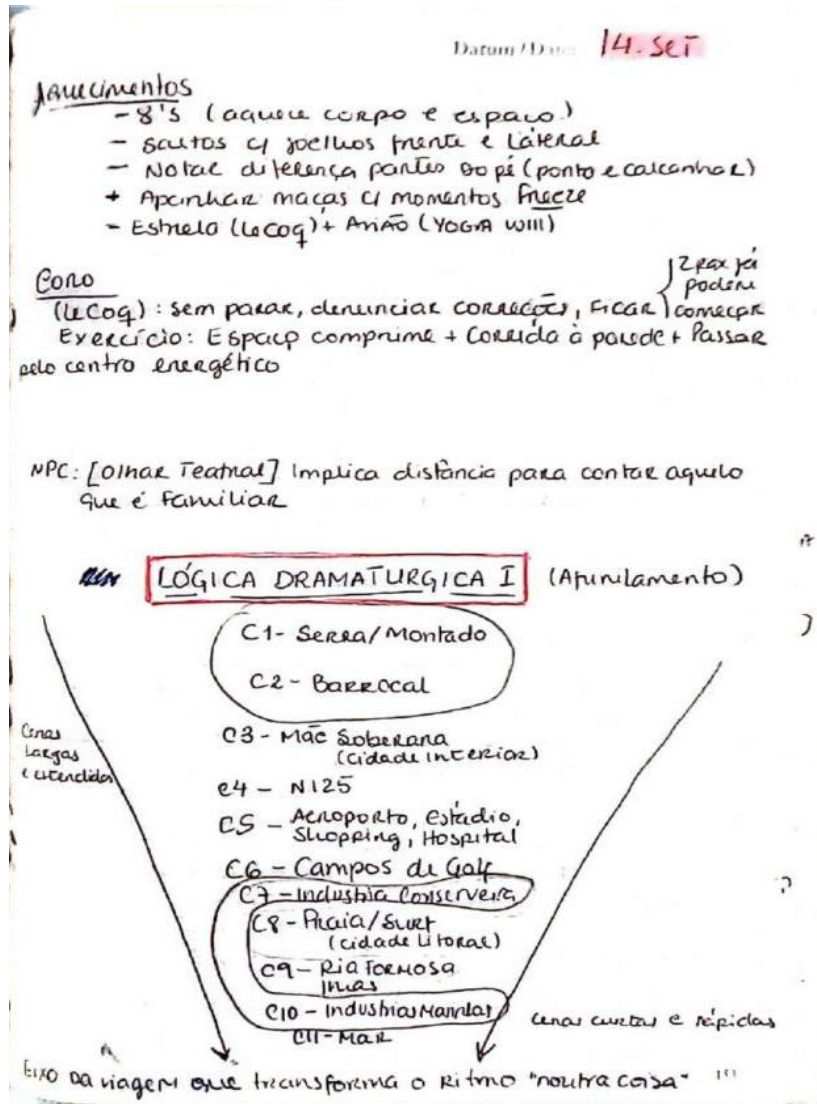 Datum / Date 14. SET
Aquecimentos
- 8'S (aquece corpo e espaço)
- Saltos c/ joelhos frente e lateral
- Notar diferença partes do pé (ponta e calcanhar)
+ Apanhar maçãs c/ momentos freeze
- Estrela (Lecoq) + Avião (YOGA WIII)
Coro
2 pax já
podem
(LeCoq): sem parar, denunciar correcções, Ficar começar
Exercício: Espaço comprime + Corrida à parede + Passar
pelo centro energético
NPC: [Olhar Teatral] Implica distância para contar aquilo
que é familiar
LÓGICA DRAMATURGICA I (Afunilamento)
C1- Serra/Montado
C2- Barrocal
C3- Mãe Soberana
(cidade interior)
Cenas
Largas
e estendidas
C4 - N125
C5 - Aeroporto, Estádio,
Shopping, Hospital
C6 - Campos de Golf
C7 - Industria Conserveira
C8 - Praia/Surf
(cidade Litoral)
C9 - Ria Formosa
Ilhas
C10 - Industrias
C11 - Mar
cenas curtas e rápidas
Eixo da viagem que transforma o Ritmo "noutra coisa"